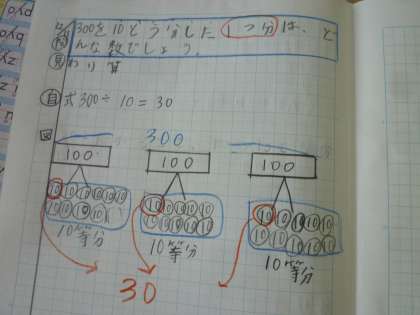 300を10とう分した1つ分は、ど
んな数でしょう。
見 わり算
自 式300÷10=30
図
300
100 100 100
10 10 10 10 10 10 10 10 10 10 10 10 10 10 10
10 10 10 10 10 10 10 10 10 10 10 10
10等分 10等分 10等分
30